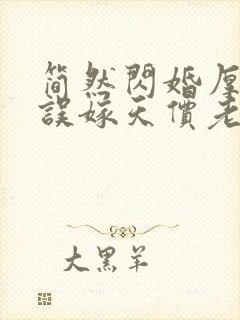 简然閃婚厚
誤嫁天價老
大黑羊